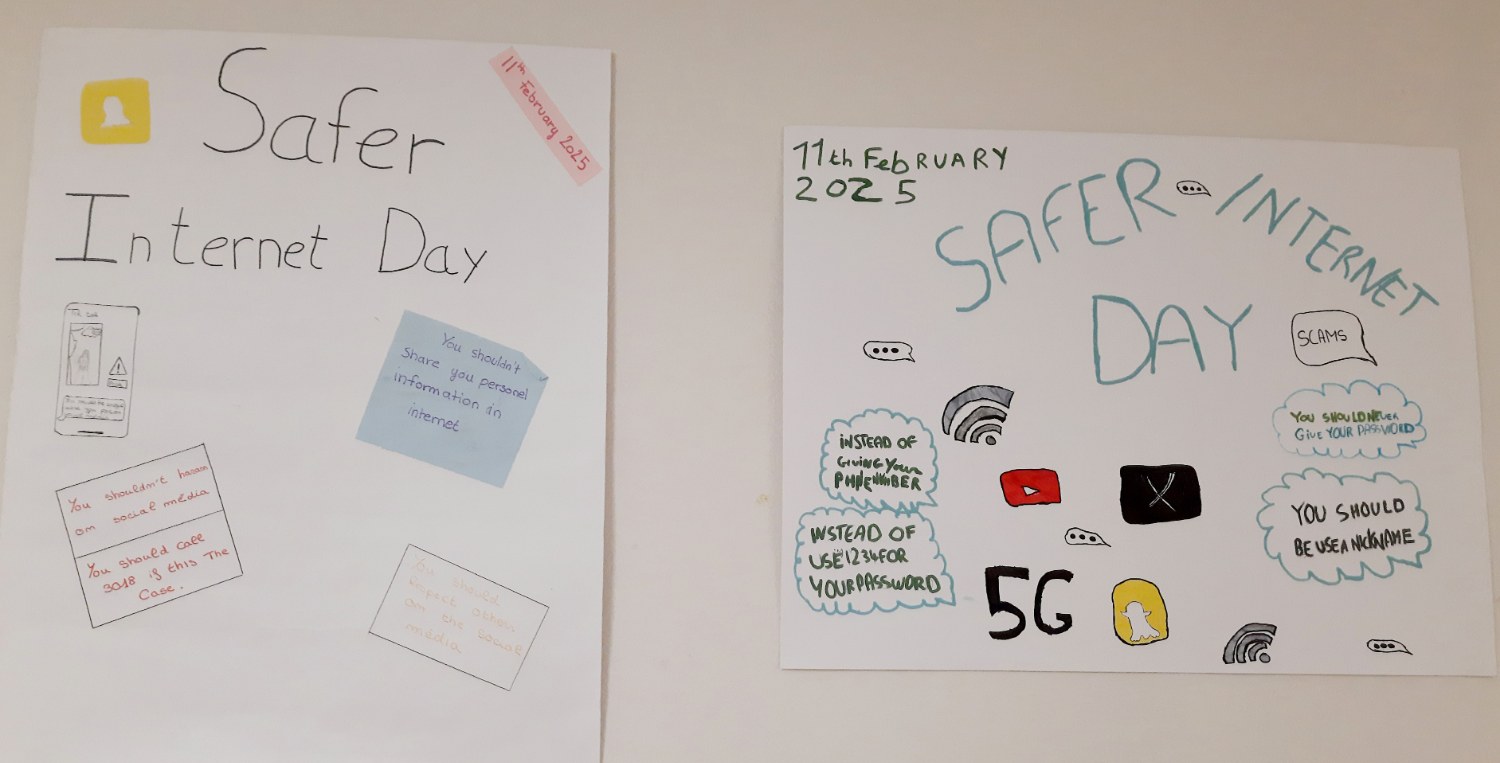 Safer
Internet Day
11th February 2025
You shouldn't
Share you personel
information in
internet
You shouldn't harass
on social media
You should call
3018 if this The
Case.
You should
respect others
on the social
media
11th FebRUARY
2025
SAFER-INTERNET
DAY
SCAMS
INSTEAD OF
GIVING YOUR
YOU SHOULD NEVER
GIVE YOUR PASSWORD
INSTEAD OF
USE 1234 FOR
YOUR PASSWORD
YOU SHOULD
BE USE A NICKNAME
X
5G